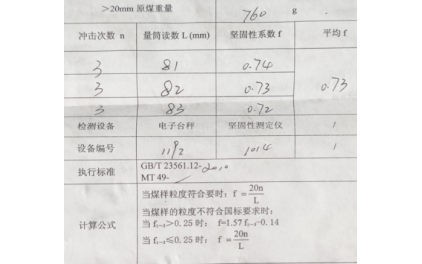 >20mm 原煤重量 760 g
冲击次数 n 量筒读数 L (mm) 坚固性系数 f 平均 f
3 81 0.74
3 82 0.73 0.73
3 83 0.72
检测设备 电子台秤 坚固性测定仪 /
设备编号 1192 1014 /
执行标准 GB/T 23561.12-2010
MT 49-
计算公式 当煤样粒度符合要时: f =20n/L
当煤样的粒度不符合国标要求时:
当 f₁₋₃>0.25 时: f=1.57 f₁₋₃-0.14
当 f₁₋₃≤0.25 时: f =20n/L